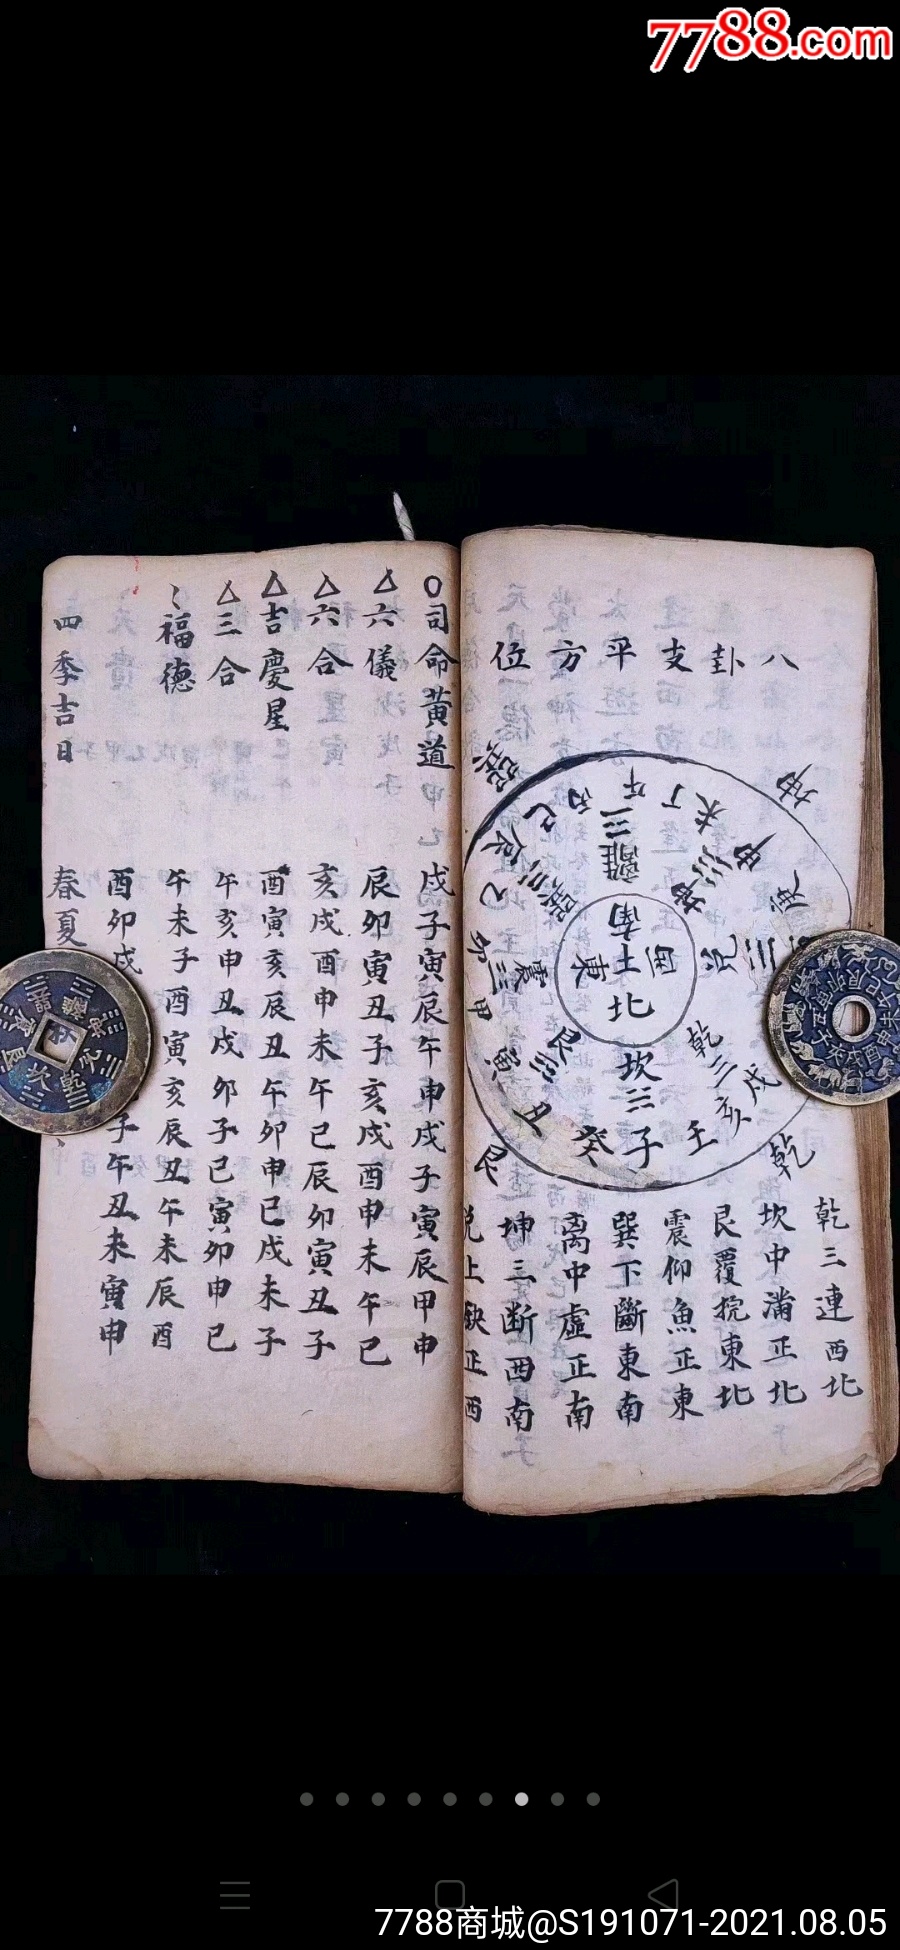 7788.com
八卦支平方位
坤
巽
丁午丙
未
巳
離
申
坤
辰
巽
庚
乙
南
兌
西土東
卯
震
北
甲
乾
坎
艮
寅
戌
亥
壬子癸
丑
乾
艮
乾三連西北
坎中滿正北
艮覆捥東北
震仰魚正東
巽下斷東南
离中虛正南
坤三断西南
兑上缺正西
○司命黄道 戌子寅辰午申戌子寅辰甲申
△六儀 辰卯寅丑子亥戌酉申未午巳
△六合 亥戌酉申未午巳辰卯寅丑子
△吉慶星 酉寅亥辰丑午卯申巳戌未子
△三合 午亥申丑戌卯子巳寅卯申巳
福德 午未子酉寅亥辰丑午未辰酉
酉卯戌 子午丑未寅申
四季吉日 春夏
7788商城@S191071-2021.08.05